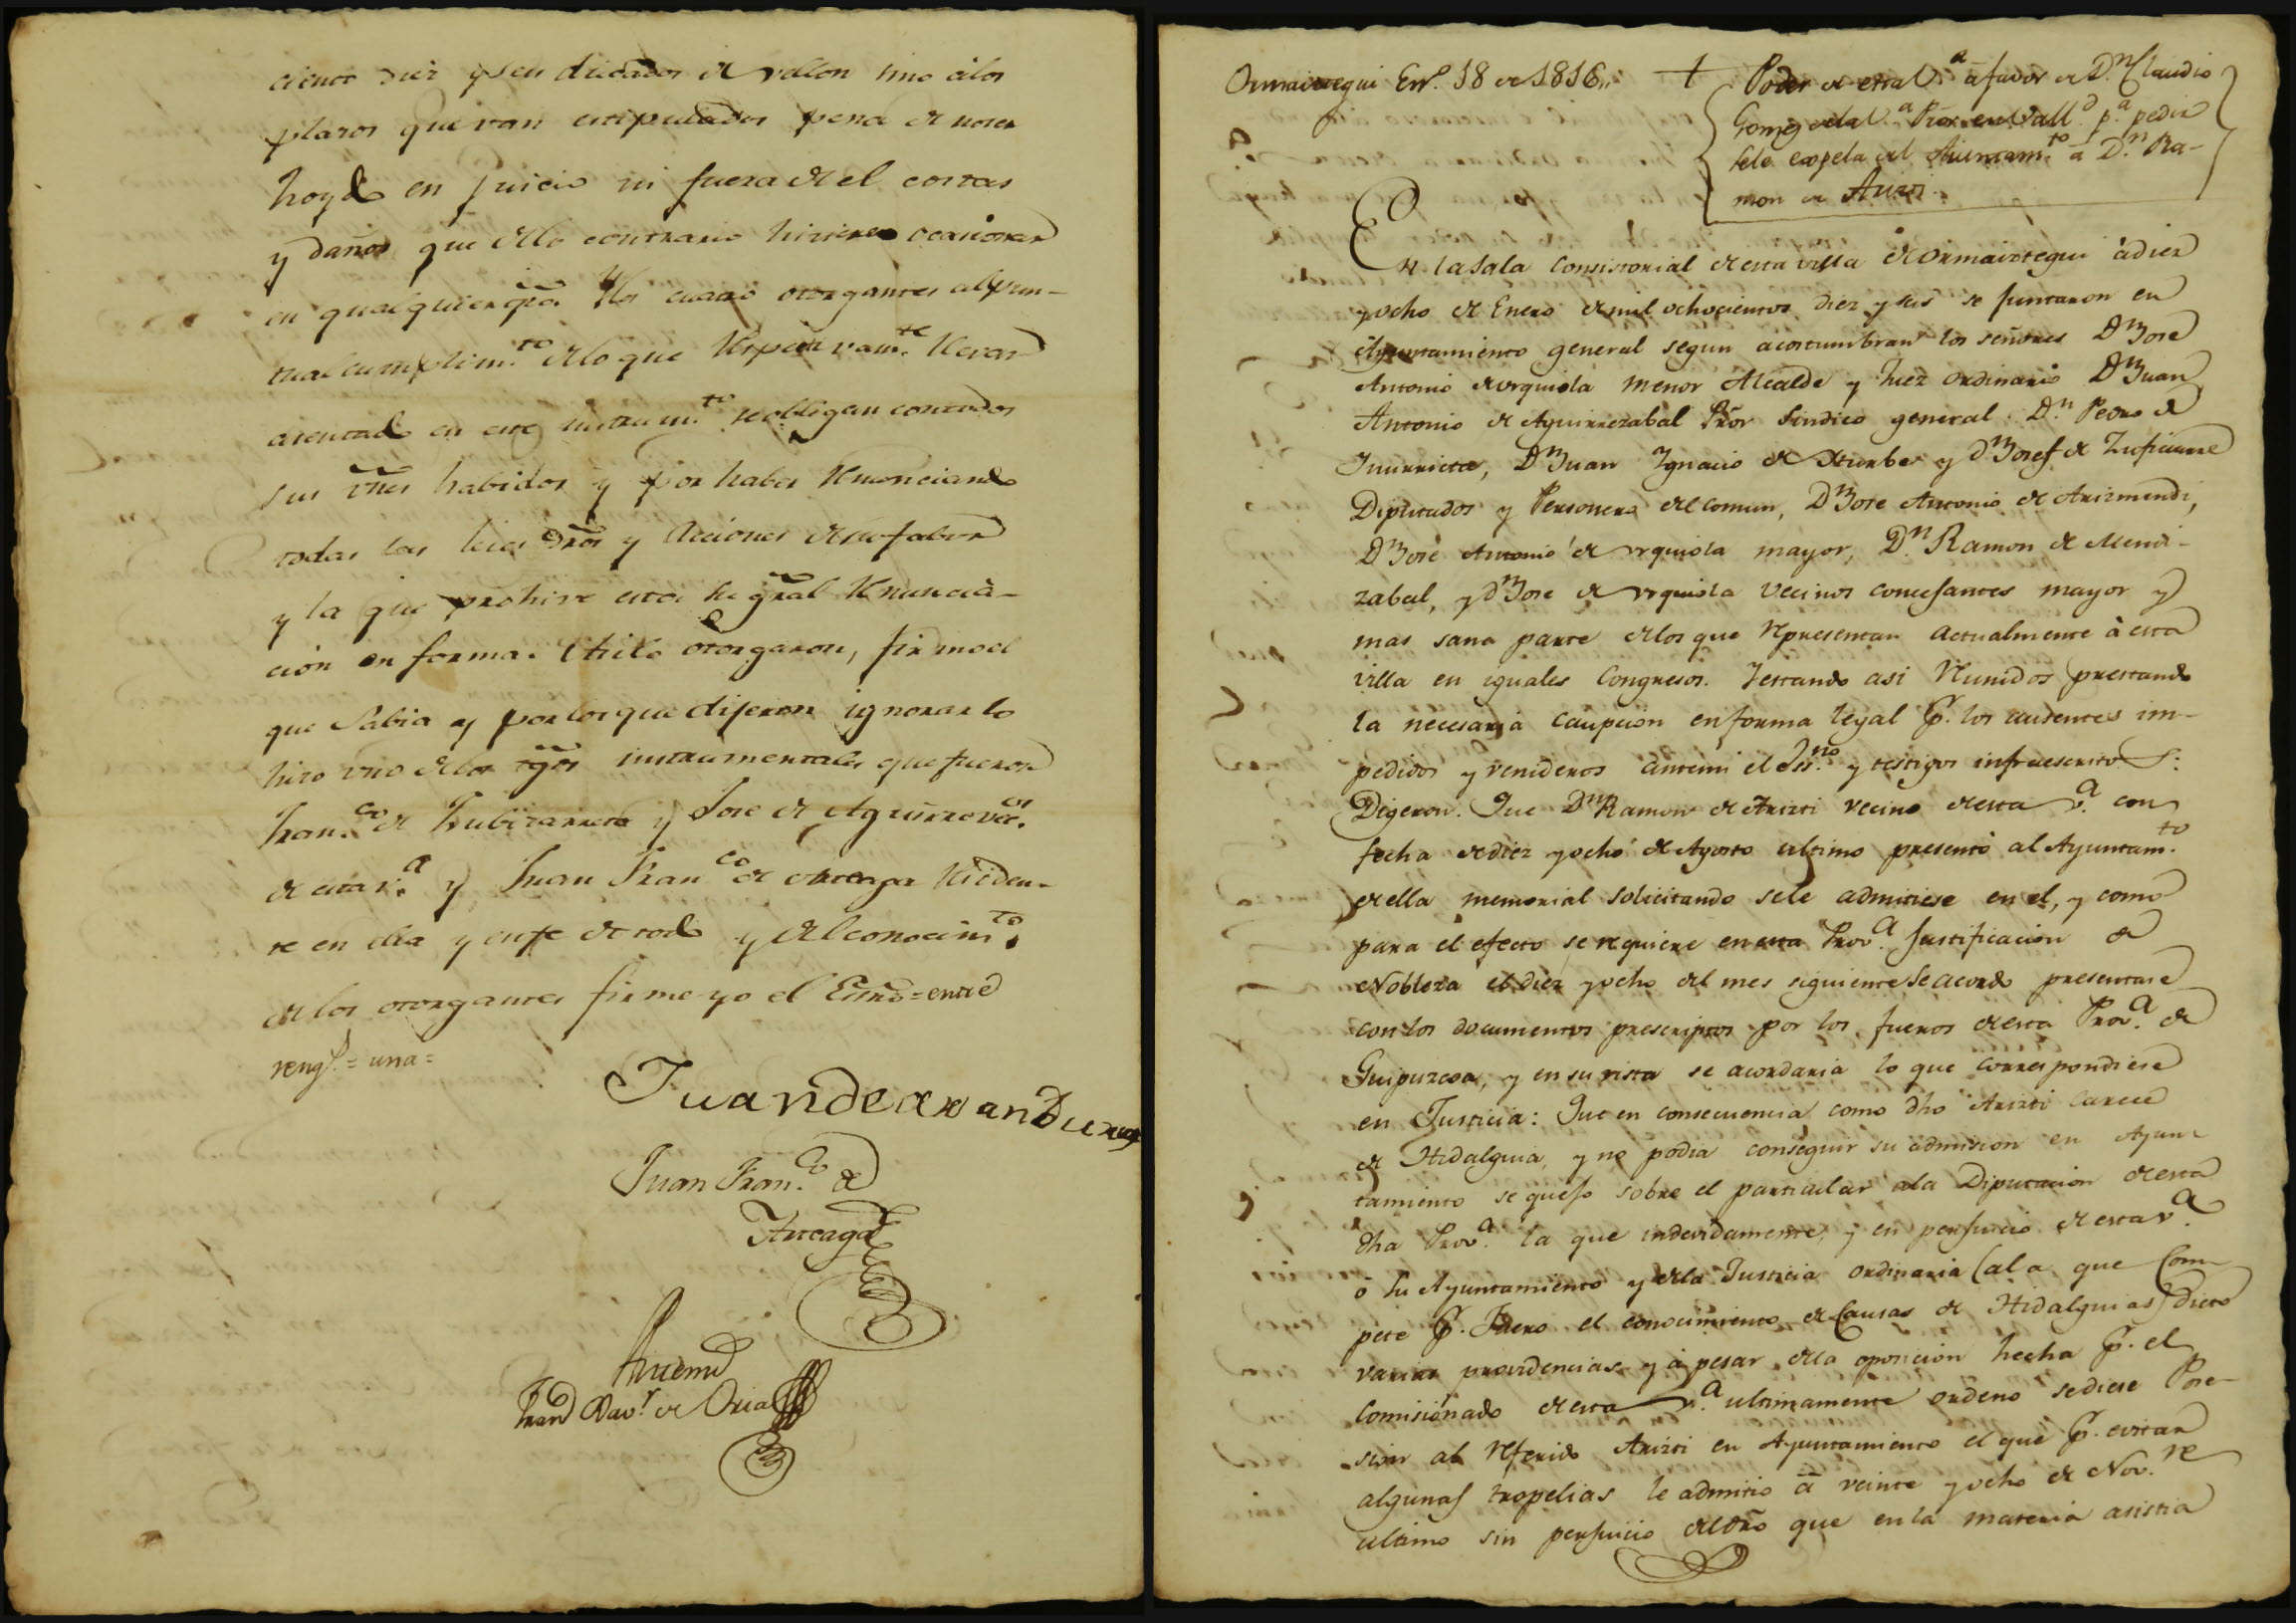 ciento diez y seis ducados de vellon sino á los
plazos que van estipulados pena de no ser
hoydo en Juicio ni fuera de el costas
y daños que de lo contrario hicieren ocasionar
en qualquier
tual cumplim.to de lo que respectivam.te llevan
asentado en este instrum.to se obligan con todos
sus vñes habidos y por haber renunciando
todas las leies dr̃os y acciones de su fabor
y la que prohive esta hẽ gr̃al renuncia-
cion en forma. Asi lo otorgaron, firmo el
que Sabia y por los que dijeron ignorarlo
hizo uno de los tgõs instrumentales que fueron
Fran.co de y Jose de Aguirre vec.os
de esta v.a y Juan Fran.co de Arteaga residen-
te en ella y en fe de todo y del conocim.to
de los otorgantes firme yo el Essno = entre
rengl.s = una =
Juan de aranburu
Juan Fran.co de
Arteaga
Antemi
Fran.co Xav.r de Oria
Ormaiztegui En.o 18 de 1816,,
Poder de esta V.a a favor de D.n Claudio
Gomez de la V.a Pror. en Vall.d p.a pedir
sele expela del Aiuntam.to á D.n Ra-
mon de Arizti.
En la Sala Consistorial de esta villa de Ormaiztegui á diez
y ocho de Enero de mil ochocientos diez y seis se juntaron en
Ayuntamiento general segun acostumbran los señores D.n Jose
Antonio de Urquiola menor Alcalde y Juez ordinario D.n Juan
Antonio de Aguirrezabal Pr̃or Sindico general D.n Pedro de
Iñurrieta, D.n Juan Ignacio de Iturbe y D.n Josef de
Diputados y Personero del comun, D.n Jose Antonio de Arizmendi,
D.n Josè Antonio de Urquiola mayor, D.n Ramon de Mendi-
zabal, y D.n Jose de Urquiola vecinos concejantes mayor y
mas sana parte de los que representan actualmente à esta
villa en iguales Congresos. Y estando asi reunidos prestando
la necesaria caupcion en forma legal p. los ausentes im-
pedidos y venideros antemi el Ess.no y testigos infraescritos:
Digeron. Que D.n Ramon de Arizti vecino de esta v.a con
fecha de diez y ocho de Agosto ultimo presentò al Ayuntam.to
de ella memorial solicitando sele admitiese en el, y como
para el efecto se requiere en esta Prov.a Justificacion de
Nobleza el diez y ocho del mes siguiente se acordo presentase
con los documentos prescriptos por los fueros de esta Prov.a de
Guipuzcoa, y en su vista se acordaria lo que correspondiese
en Justicia: Que en consecuencia como dho Arizti carece
de Hidalguia, y no podia conseguir su admision en Ayun-
tamiento se quejo sobre el particular ala Diputacion de esta
dha Prov.a la que indevidamente, y en perjuicio de esta v.a
ò su Ayuntamiento y de la Justicia ordinaria (ala que Com-
pete p. Fuero el conocimiento de Causas de Hidalguias) dictó
varias providencias y à pesar de la oposicion hecha p. el
Comisionado de esta v.a ultimamente ordeno se diese Pose-
sion al referido Arizti en Ayuntamiento el que p. evitar
algunas tropelias le admitio à veinte y ocho de Nov.re
ultimo sin perjuicio del dr̃o que en la materia asistia